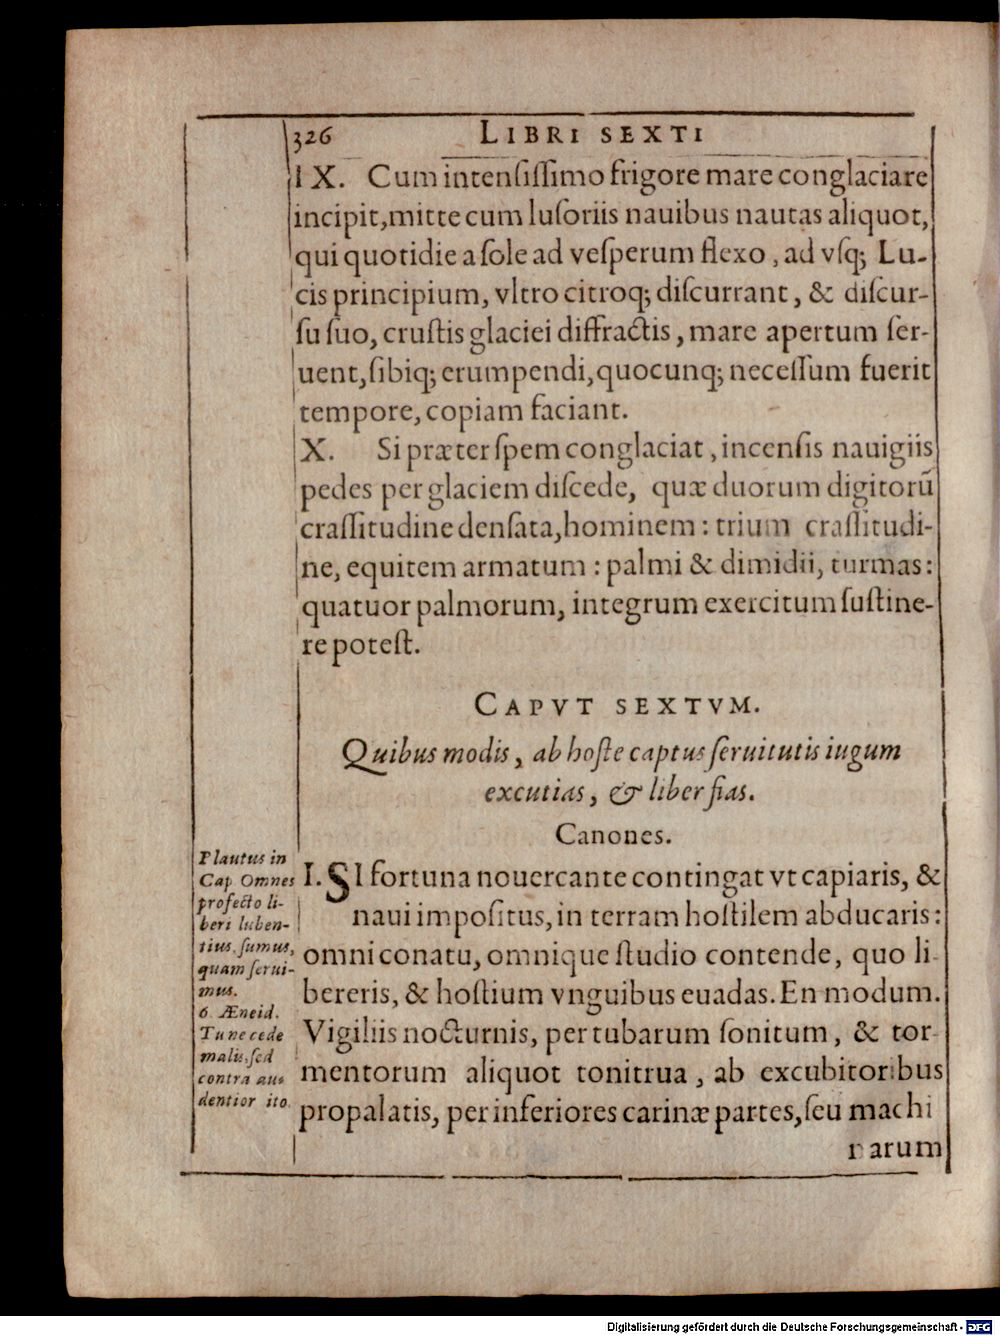 326 LIBRI SEXTI
IX. Cum intensissimo frigore mare conglaciare
incipit, mitte cum lusoriis nauibus nautas aliquot,
qui quotidie a sole ad vesperum flexo, ad vsq; Lu-
cis principium, vltro citroq; discurrant, & discur-
su suo, crustis glaciei diffractis, mare apertum ser-
uent, sibiq; erumpendi, quocunq; necessum fuerit
tempore, copiam faciant.
X. Si præter spem conglaciat, incensis nauigiis
pedes per glaciem discede, quæ duorum digitorũ
crassitudine densata, hominem: trium crassitudi-
ne, equitem armatum: palmi & dimidii, turmas:
quatuor palmorum, integrum exercitum sustine-
re potest.
CAPVT SEXTVM.
Quibus modis, ab hoste captus seruitutis iugum
excutias, & liber fias.
Canones.
I. SI fortuna nouercante contingat vt capiaris, &
naui impositus, in terram hostilem abducaris:
omni conatu, omnique studio contende, quo li-
bereris, & hostium vnguibus euadas. En modum.
Vigiliis nocturnis, per tubarum sonitum, & tor-
mentorum aliquot tonitrua, ab excubitoribus
propalatis, per inferiores carinæ partes, seu machi
narum
Plautus in
Cap. Omnes
profecto li-
beri luben-
tius sumus,
quam serui-
mus.
6. Æneid.
Tu ne cede
malis, sed
contra au-
dentior ito.
Digitalisierung gefördert durch die Deutsche Forschungsgemeinschaft - DFG